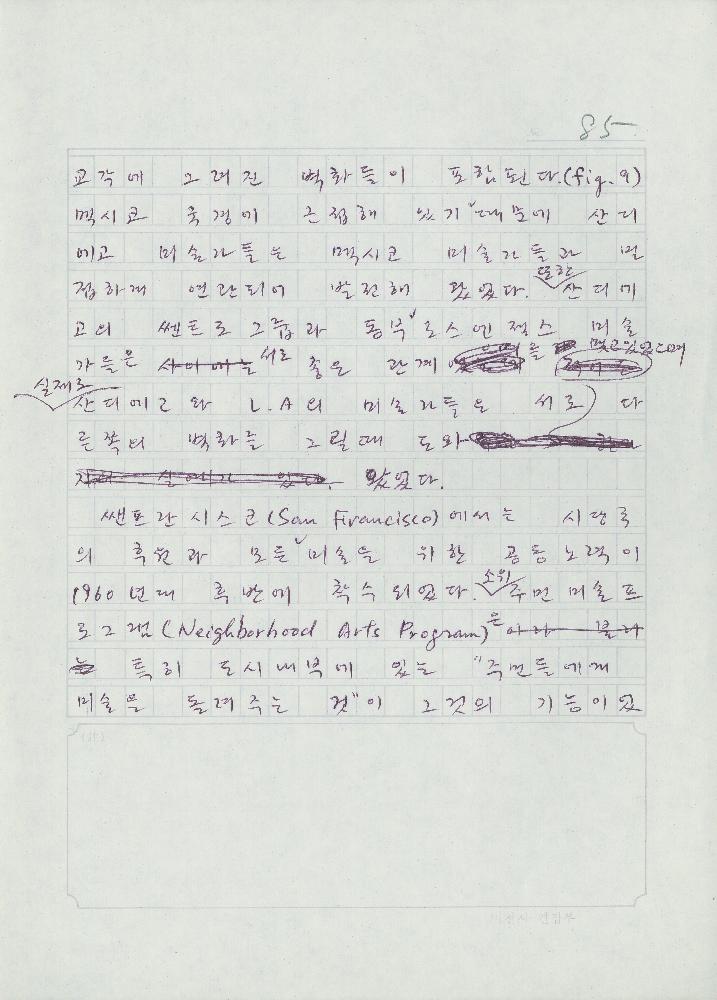 85
교각에 그려진 벽화들이 포함된다.(fig. 9)
멕시코 국경에 근접해 있기 때문에 산디
에고 미술가들은 멕시코 미술가들과 밀
접하게 연관되어 발전해 왔었다. 또한 산디에
고의 쎈트로 그룹과 동부 로스엔젤스 미술
가들은 서로 좋은 관계를 맺고 있었으며
실제로 산디에고와 L.A의 미술가들은 서로 다
른쪽의 벽화를 그릴때 도와
왔었다.
쌘프란시스코(San Francisco)에서는 시당국
의 후원과 모든 미술을 위한 공동노력이
1960년대 후반에 착수되었다. 소위 주민미술프
로그램(Neighborhood Arts Program)은
특히 도시내부에 있는 "주민들에게
미술을 돌려주는 것"이 그것의 기능이었
편집부